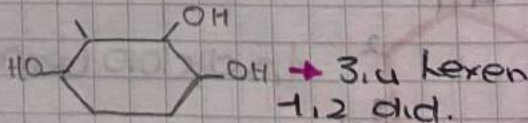 OH
HO OH → 3,4 hexen
-1,2 did.